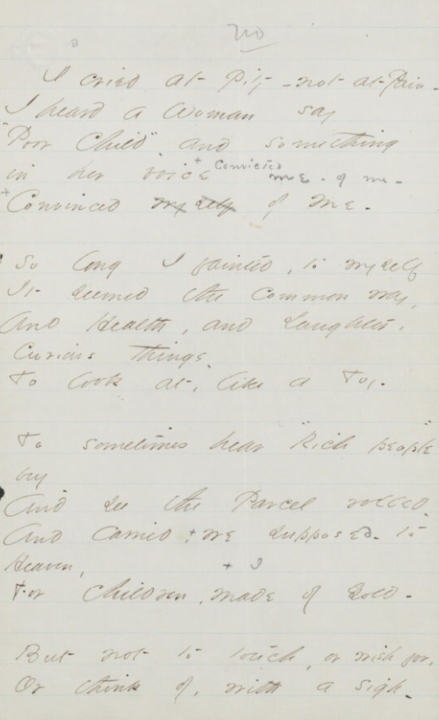 I cried at Pity - not at Pain -
I heard a Woman say
"Poor Child" and something
in her voice + Convicted me - of me -
+ Convinced myself of me -
So long I fainted, to myself
It seemed the common way,
And Health, and Laughter,
Curious things,
To look at, like a Toy -
To sometimes hear "Rich people"
buy
And see the Parcel rolled
And carried, + we supposed - to
Heaven, + I
For Children, made of Gold -
But not to touch, or wish for,
Or think of, with a sigh -